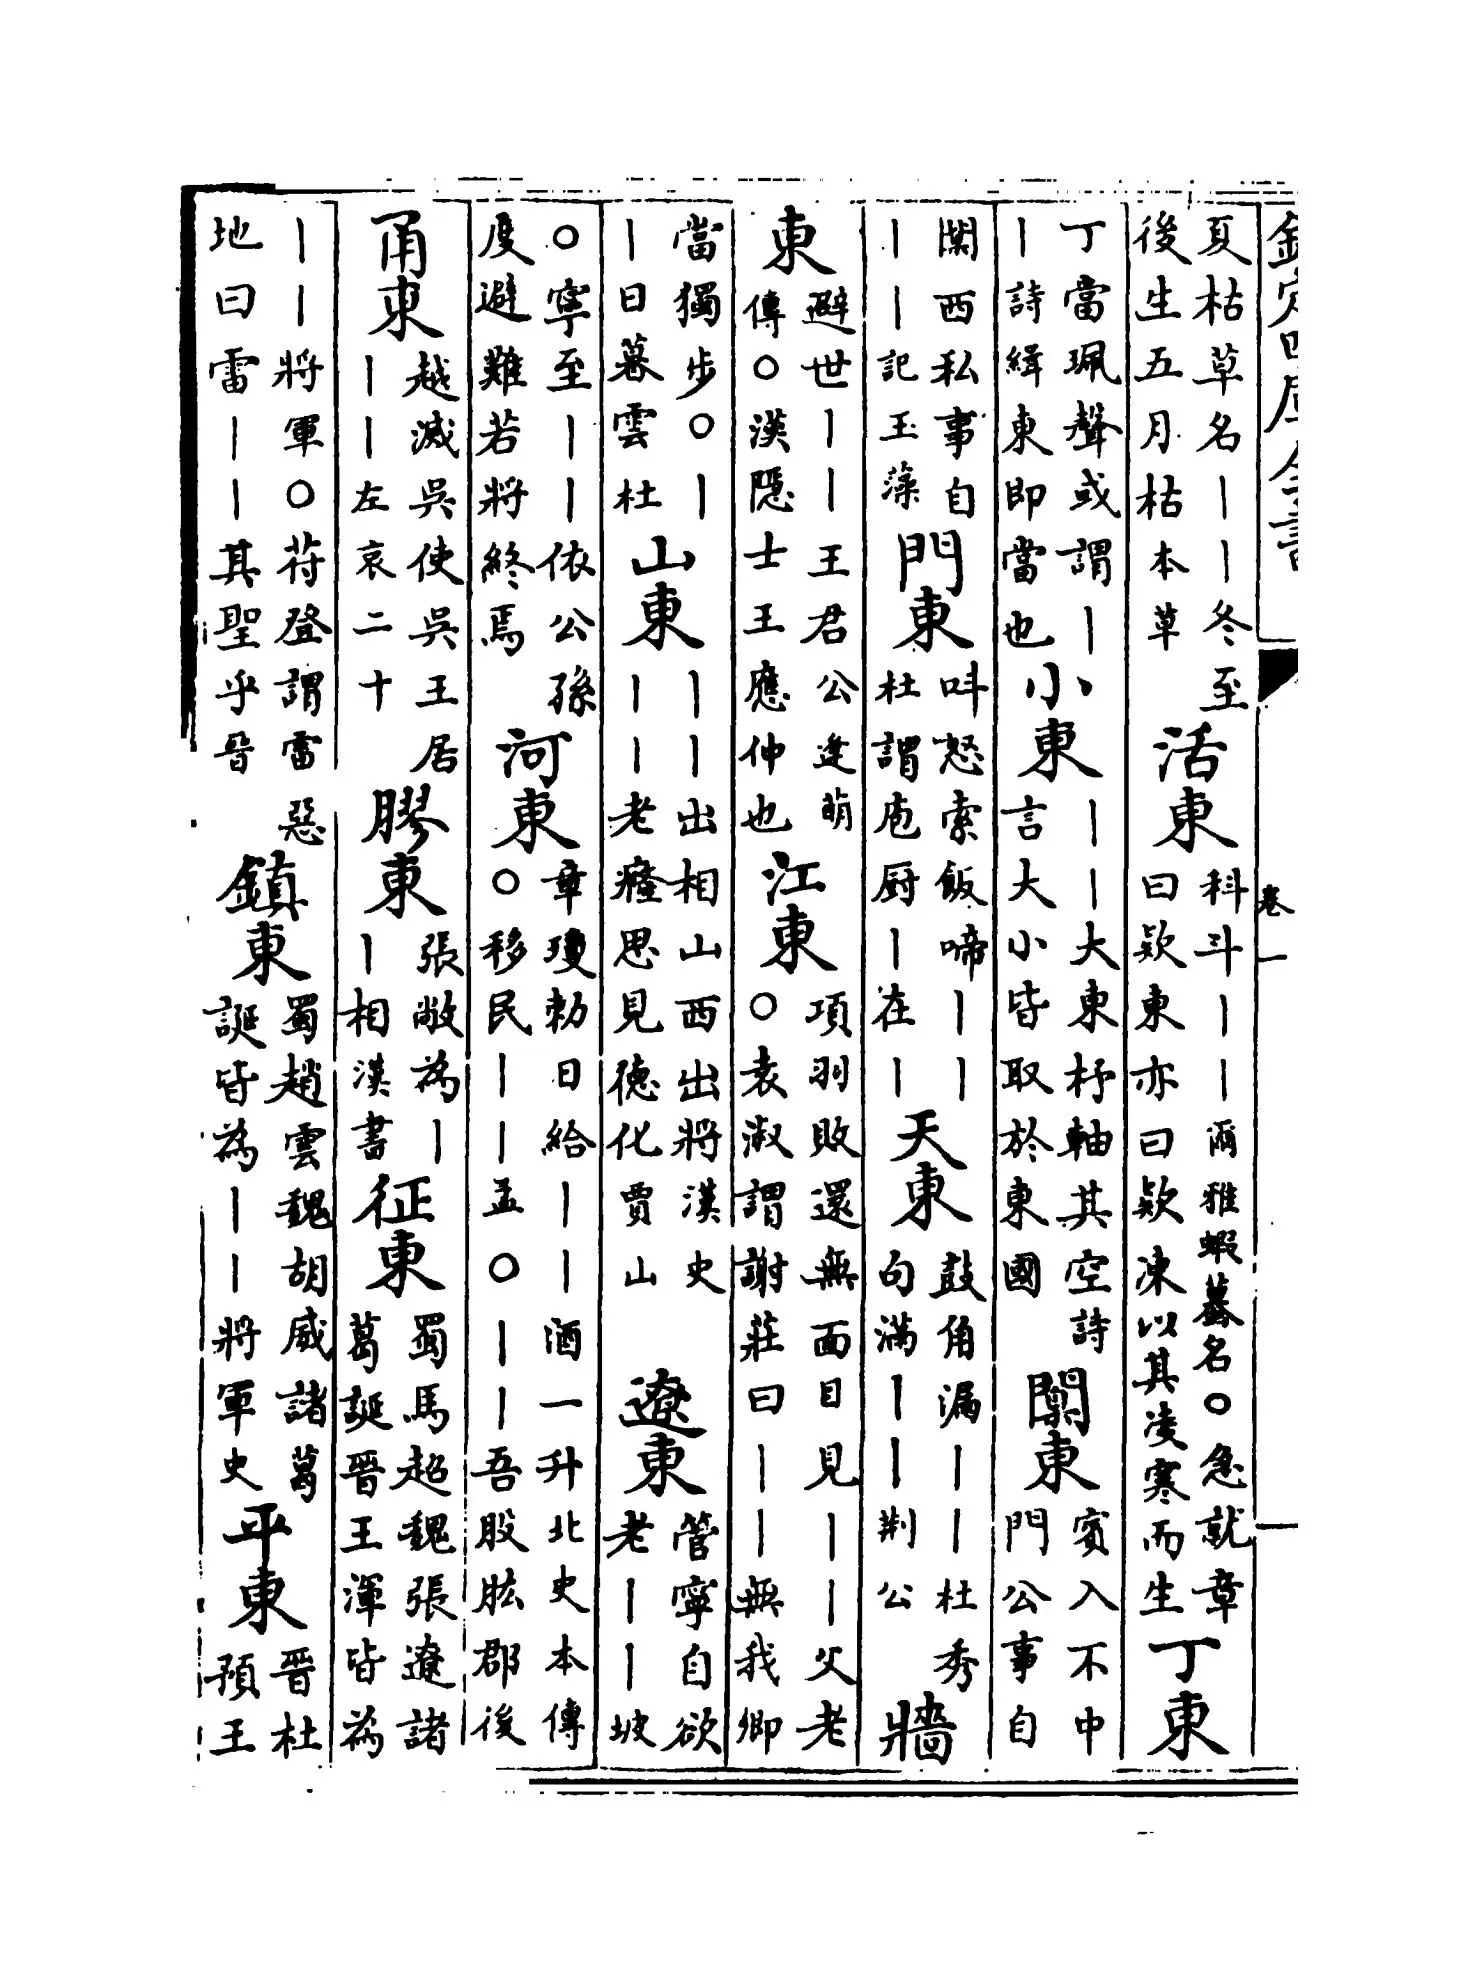 欽定四庫全書
卷一
一
夏枯草名丨丨冬至
後生五月枯本草
活東
科斗丨丨爾雅蝦蟇名○急就章
曰欵東亦曰欵凍以其凌寒而生
丁東
丁當珮聲或謂丨
丨詩緝東即當也
小東
丨丨大東杼軸其空詩
言大小皆取於東國
闑東
賓入不中
門公事自
闑西私事自
丨丨記玉藻
門東
呌怒索飯啼丨丨
杜謂庖厨丨在丨
天東
鼓角漏丨丨杜秀
句滿丨丨荆公
牆
東
避世丨丨王君公逢萌
傳○漢隱士王應仲也
江東
項羽敗還無面目見丨丨父老
○袁淑謂謝莊曰丨丨無我卿
當獨步○丨
丨日暮雲杜
山東
丨丨出相山西出將漢史
丨丨老癃思見德化賈山
遼東
管寧自欲
老丨丨坡
○寧至丨丨依公孫
度避難若將終焉
河東
章瓊勅日給丨丨酒一升北史本傳
○移民丨丨孟○丨丨吾股肱郡後
甬東
越滅吳使吳王居
丨丨左哀二十
膠東
張敞為丨
丨相漢書
征東
蜀馬超魏張遼諸
葛誕晉王渾皆為
丨丨將軍○苻登謂雷惡
地曰雷丨丨其聖乎晉
鎮東
蜀趙雲魏胡威諸葛
誕皆為丨丨將軍史
平東
晉杜
預王